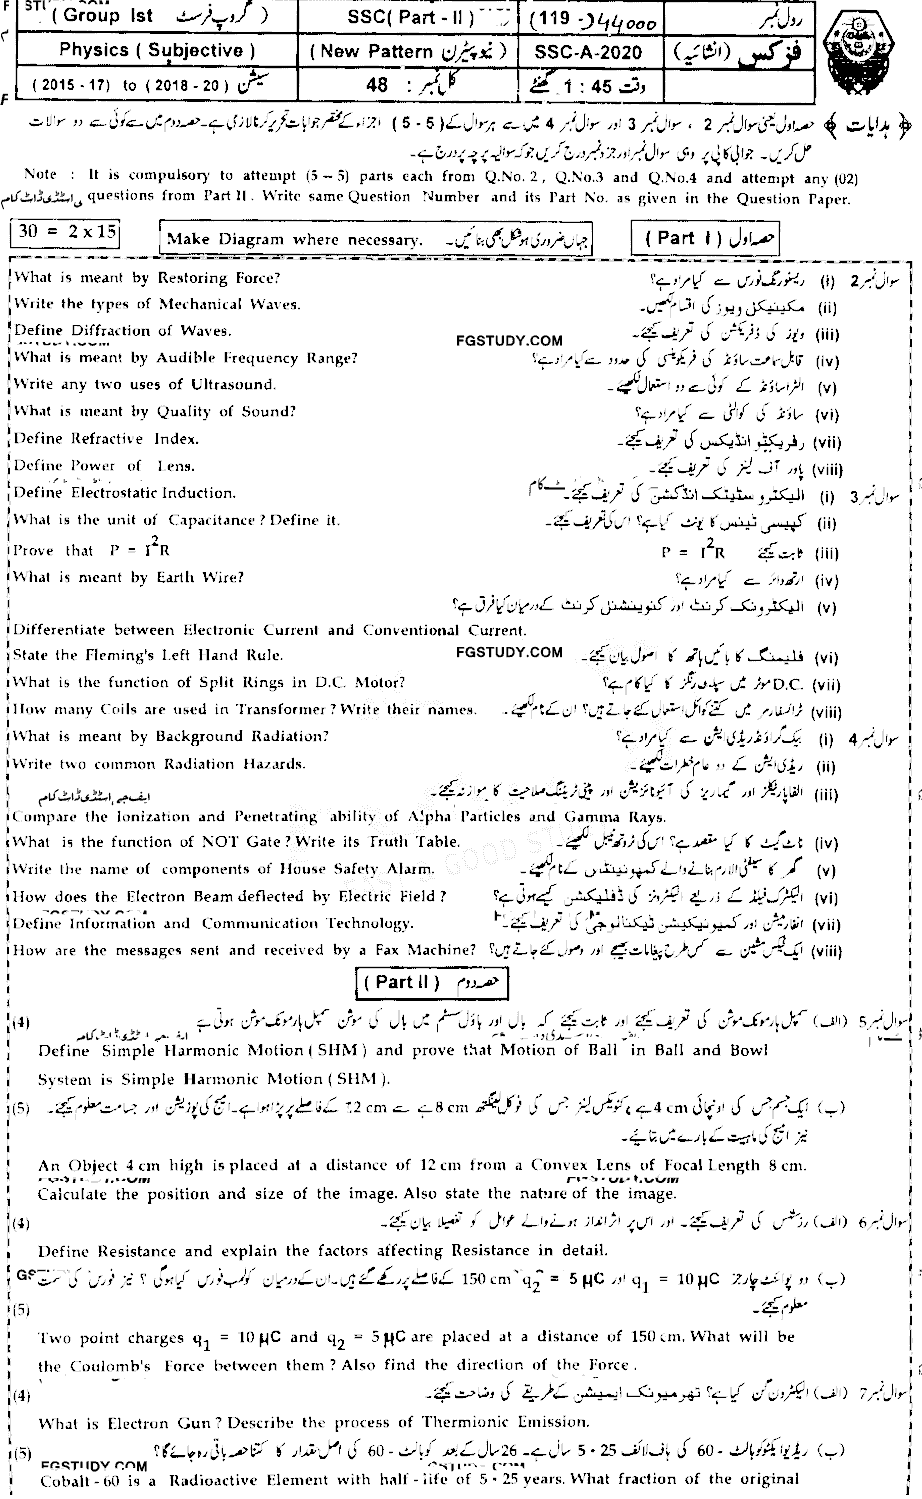 (Group Ist گروپ فرسٹ) SSC(Part - II) (119 رول نمبر
Physics ( Subjective ) (New Pattern نیو پیٹرن) SSC-A-2020 فزکس (انشائیہ)
(2015 - 17) to (2018 - 20) سیشن کل نمبر : 48 وقت 1 : 45 گھنٹے
﴿ ہدایات ﴾ حصہ اول یعنی سوال نمبر 2 ، سوال نمبر 3 اور سوال نمبر 4 میں سے ہر سوال کے (5 - 5) اجزاء کے مختصر جوابات تحریر کرنا لازمی ہے۔ حصہ دوم میں سے کوئی سے دو سوالات
حل کریں۔ جوابی کاپی پر وہی سوال نمبر اور جز نمبر درج کریں جو کہ سوالیہ پرچہ پر درج ہے۔
Note : It is compulsory to attempt (5 – 5) parts each from Q.No. 2 , Q.No.3 and Q.No.4 and attempt any (02)
questions from Part II . Write same Question Number and its Part No. as given in the Question Paper.
30 = 2 x 15 Make Diagram where necessary. جہاں ضروری ہو شکل بھی بنائیں۔ (Part I) حصہ اول
What is meant by Restoring Force? ریسٹورنگ فورس سے کیا مراد ہے؟ (i) سوال نمبر 2
Write the types of Mechanical Waves. مکینیکل ویوز کی اقسام لکھیں۔ (ii)
Define Diffraction of Waves. ویوز کی ڈفریکشن کی تعریف کیجئے۔ (iii)
FGSTUDY.COM
What is meant by Audible Frequency Range? قابل سماعت ساؤنڈ کی فریکوئنسی کی حدود سے کیا مراد ہے؟ (iv)
Write any two uses of Ultrasound. الٹراساؤنڈ کے کوئی سے دو استعمال لکھیئے۔ (v)
What is meant by Quality of Sound? ساؤنڈ کی کوالٹی سے کیا مراد ہے؟ (vi)
Define Refractive Index. رفریکٹو انڈیکس کی تعریف کیجئے۔ (vii)
Define Power of Lens. پاور آف لینز کی تعریف کیجئے۔ (viii)
Define Electrostatic Induction. الیکٹرو سٹیٹک انڈکشن کی تعریف کیجئے۔ (i) سوال نمبر 3
What is the unit of Capacitance? Define it. کپیسی ٹینس کا یونٹ کیا ہے؟ اس کی تعریف کیجئے۔ (ii)
Prove that P = I²R ثابت کیجئے P = I²R (iii)
What is meant by Earth Wire? ارتھ وائر سے کیا مراد ہے؟ (iv)
الیکٹرونک کرنٹ اور کنوینشنل کرنٹ کے درمیان کیا فرق ہے؟ (v)
Differentiate between Electronic Current and Conventional Current.
State the Fleming's Left Hand Rule. FGSTUDY.COM فلیمنگ کا بائیں ہاتھ کا اصول بیان کیجئے۔ (vi)
What is the function of Split Rings in D.C. Motor? D.C. موٹر میں سپلٹ رنگز کا کیا کام ہے؟ (vii)
How many Coils are used in Transformer? Write their names. ٹرانسفارمر میں کتنے کوائل استعمال کئے جاتے ہیں؟ ان کے نام لکھیئے۔ (viii)
What is meant by Background Radiation? بیک گراؤنڈ ریڈی ایشن سے کیا مراد ہے؟ (i) سوال نمبر 4
Write two common Radiation Hazards. ریڈی ایشن کے دو عام خطرات لکھیئے۔ (ii)
ایف جی اسٹڈی ڈاٹ کام الفا پارٹیکلز اور گیما ریز کی آئیونائزیشن اور پینی ٹریٹنگ صلاحیت کا موازنہ کیجئے۔ (iii)
Compare the Ionization and Penetrating ability of Alpha Particles and Gamma Rays.
What is the function of NOT Gate? Write its Truth Table. ناٹ گیٹ کا کیا مقصد ہے؟ اس کی ٹروتھ ٹیبل لکھیئے۔ (iv)
Write the name of components of House Safety Alarm. گھر کا سیفٹی الارم بنانے والے کمپونینٹس کے نام لکھیئے۔ (v)
How does the Electron Beam deflected by Electric Field? الیکٹرک فیلڈ کے ذریعے الیکٹرونز کی ڈفلیکشن کیسے ہوتی ہے؟ (vi)
Define Information and Communication Technology. انفارمیشن اور کمیونیکیشن ٹیکنالوجی کی تعریف کیجئے۔ (vii)
How are the messages sent and received by a Fax Machine? ایک فیکس مشین سے کس طرح پیغامات بھیجے اور وصول کئے جاتے ہیں؟ (viii)
(Part II) حصہ دوم
(4) سوال نمبر 5 (الف) سمپل ہارمونک موشن کی تعریف کیجئے اور ثابت کیجئے کہ بال اور باؤل سسٹم میں بال کی موشن سمپل ہارمونک موشن ہوتی ہے
Define Simple Harmonic Motion (SHM) and prove that Motion of Ball in Ball and Bowl
System is Simple Harmonic Motion (SHM).
(5) (ب) ایک جسم جس کی اونچائی 4 cm ہے، کنویکس لینز جس کی فوکل لینگتھ 8 cm ہے سے 12 cm کے فاصلے پر پڑا ہوا ہے۔ امیج کی پوزیشن اور جسامت معلوم کیجئے۔
نیز امیج کی ماہیت کے بارے میں بتائیے۔
An Object 4 cm high is placed at a distance of 12 cm from a Convex Lens of Focal Length 8 cm.
Calculate the position and size of the image. Also state the nature of the image.
(4) سوال نمبر 6 (الف) رزسٹنس کی تعریف کیجئے۔ اور اس پر اثر انداز ہونے والے عوامل کو تفصیلا بیان کیجئے۔
Define Resistance and explain the factors affecting Resistance in detail.
(ب) دو پوائنٹ چارجز q₁ = 10 µC اور q₂ = 5 µC 150 cm کے فاصلے پر رکھے گئے ہیں۔ ان کے درمیان کولمب فورس کیا ہوگی ؟ نیز فورس کی سمت
(5) معلوم کیجئے۔
Two point charges q₁ = 10 µC and q₂ = 5 µC are placed at a distance of 150 cm. What will be
the Coulomb's Force between them ? Also find the direction of the Force .
(4) سوال نمبر 7 (الف) الیکٹرون گن کیا ہے؟ تھرمیونک ایمیشن کے طریقے کی وضاحت کیجئے۔
What is Electron Gun? Describe the process of Thermionic Emission.
(5) (ب) ریڈیو ایکٹو کوبالٹ - 60 کی ہاف لائف 5.25 سال ہے۔ 26 سال کے بعد کوبالٹ - 60 کی اصل مقدار کا کتنا حصہ باقی رہ جائے گا؟
FGSTUDY.COM
Cobalt - 60 is a Radioactive Element with half - life of 5.25 years. What fraction of the original